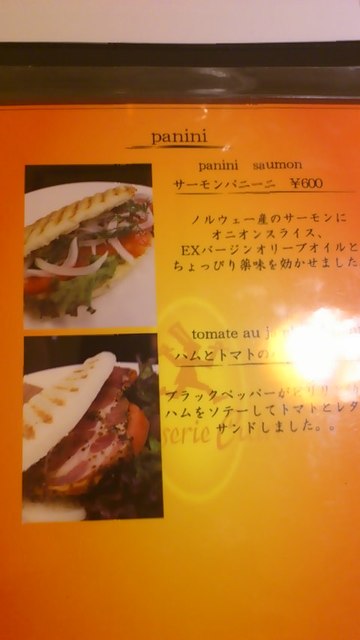 panini
panini saumon
サーモンパニーニ ¥600
ノルウェー産のサーモンに
オニオンスライス、
EXバージンオリーブオイルと
ちょっぴり薬味を効かせました
tomate au
ハムとトマトの
ブラックペッパーが
ハムをソテーしてトマトとレタ
サンドしました。。
serie